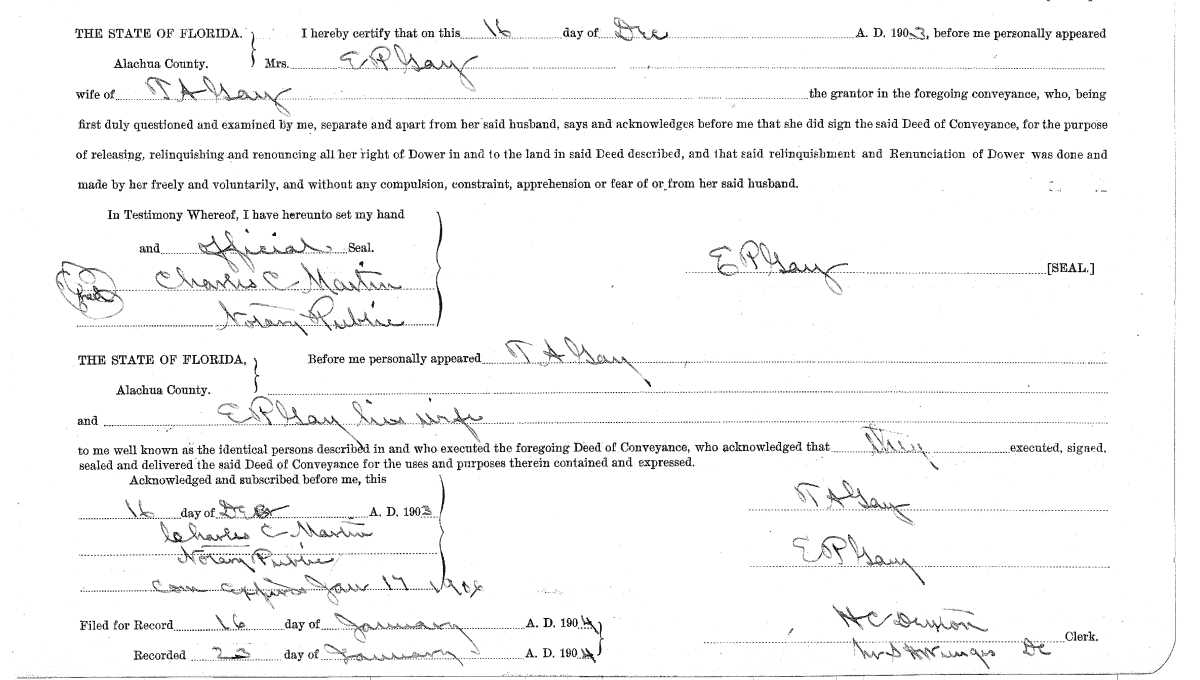 THE STATE OF FLORIDA. I hereby certify that on this 16 day of Dec A. D. 1903, before me personally appeared
Alachua County. Mrs. E P Gay
wife of T A Gay the grantor in the foregoing conveyance, who, being
first duly questioned and examined by me, separate and apart from her said husband, says and acknowledges before me that she did sign the said Deed of Conveyance, for the purpose
of releasing, relinquishing and renouncing all her right of Dower in and to the land in said Deed described, and that said relinquishment and Renunciation of Dower was done and
made by her freely and voluntarily, and without any compulsion, constraint, apprehension or fear of or from her said husband.
In Testimony Whereof, I have hereunto set my hand
and official Seal.
E P Gay [SEAL.]
Charles C Martin
Notary Public
THE STATE OF FLORIDA, Before me personally appeared T A Gay
Alachua County.
and E P Gay his wife
to me well known as the identical persons described in and who executed the foregoing Deed of Conveyance, who acknowledged that they executed, signed,
sealed and delivered the said Deed of Conveyance for the uses and purposes therein contained and expressed.
Acknowledged and subscribed before me, this
16 day of Dec A. D. 1903
T A Gay
Charles C Martin
Notary Public
E P Gay
Com Expires Jan 17 1906
Filed for Record 16 day of January A. D. 1904
H C Denton
Clerk.
Recorded 23 day of January A. D. 1904
DC